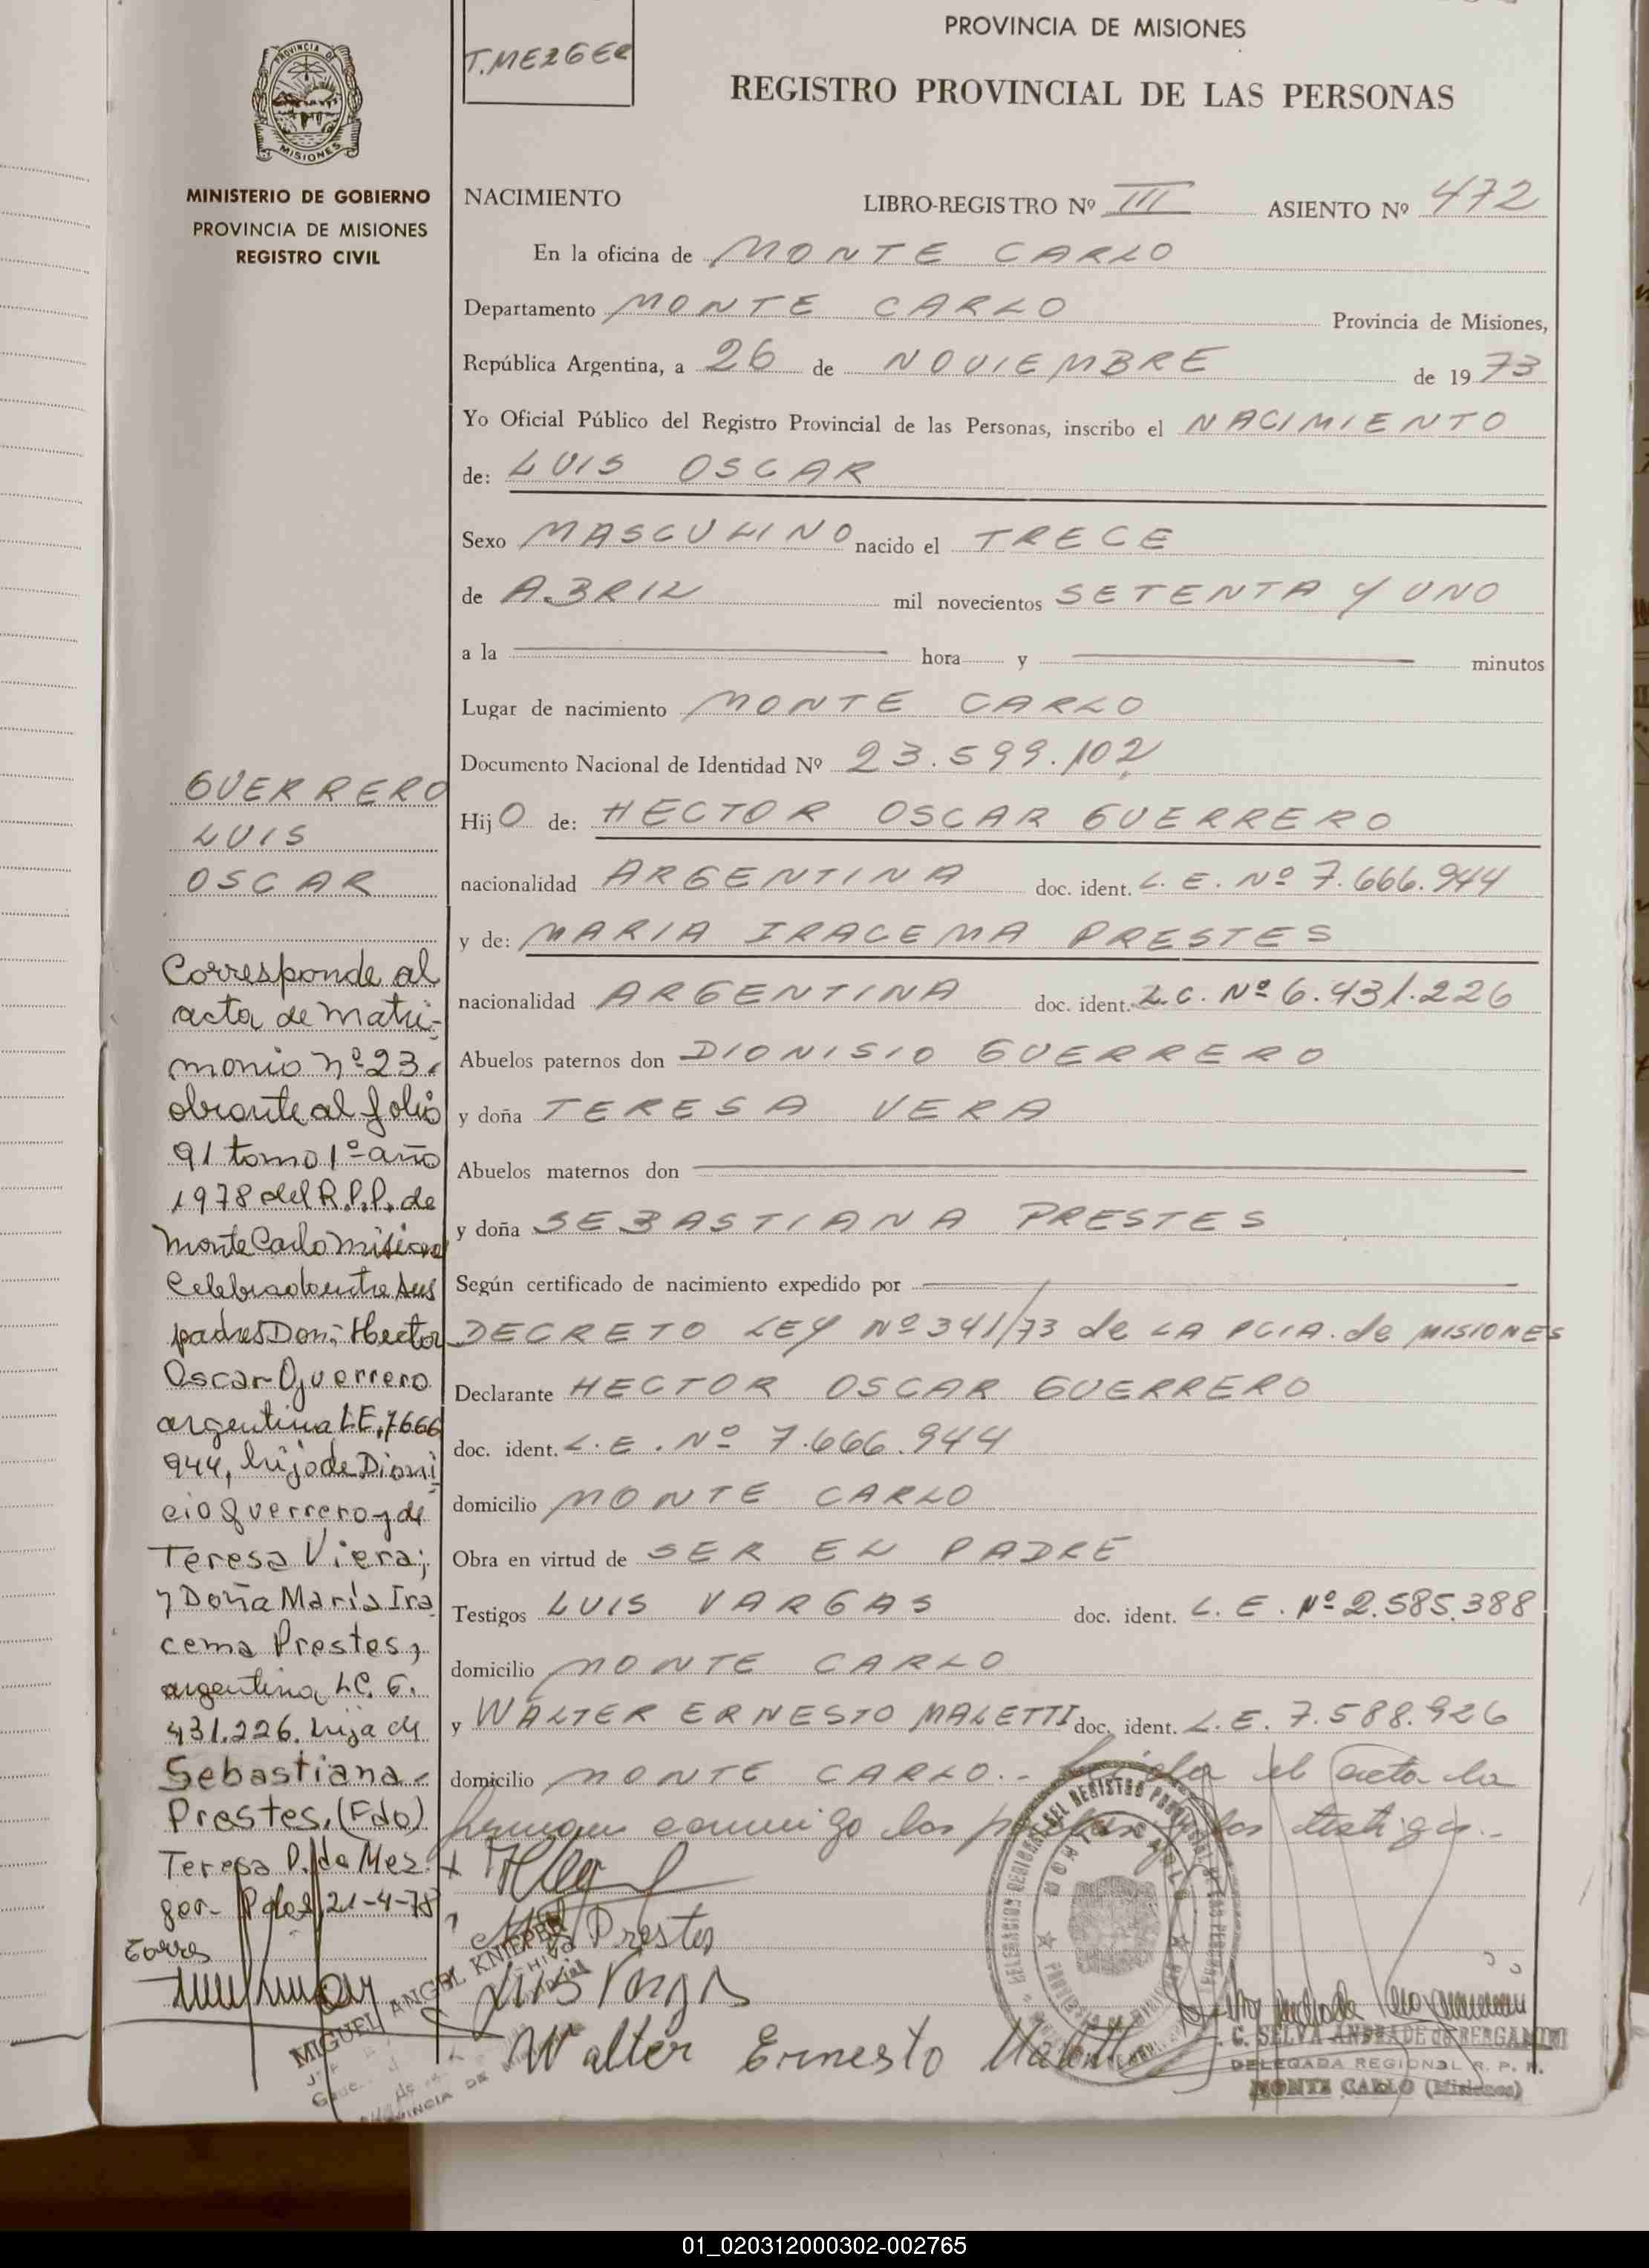 T. MEZGER
PROVINCIA DE MISIONES
REGISTRO PROVINCIAL DE LAS PERSONAS
MISIONES
MINISTERIO DE GOBIERNO
PROVINCIA DE MISIONES
REGISTRO CIVIL
NACIMIENTO LIBRO-REGISTRO Nº III ASIENTO Nº 472
En la oficina de MONTE CARLO
Departamento MONTE CARLO Provincia de Misiones,
República Argentina, a 26 de NOVIEMBRE de 1973
Yo Oficial Público del Registro Provincial de las Personas, inscribo el NACIMIENTO
de: LUIS OSCAR
Sexo MASCULINO nacido el TRECE
de ABRIL mil novecientos SETENTA Y UNO
a la hora y minutos
Lugar de nacimiento MONTE CARLO
Documento Nacional de Identidad Nº 23.599.102
Hijo de: HECTOR OSCAR GUERRERO
nacionalidad ARGENTINA doc. ident. L. E. Nº 7.666.944
y de: MARIA IRACEMA PRESTES
nacionalidad ARGENTINA doc. ident. L.C. Nº 6.431.226
Abuelos paternos don DIONISIO GUERRERO
y doña TERESA VERA
Abuelos maternos don
y doña SEBASTIANA PRESTES
Según certificado de nacimiento expedido por
DECRETO LEY Nº 341/73 de LA PCIA. de MISIONES
Declarante HECTOR OSCAR GUERRERO
doc. ident. L.E. Nº 7.666.944
domicilio MONTE CARLO
Obra en virtud de SER EL PADRE
Testigos LUIS VARGAS doc. ident. L. E. Nº 2.585.388
domicilio MONTE CARLO
y WALTER ERNESTO MALETTI doc. ident. L.E. 7.588.926
domicilio MONTE CARLO.- Leida el acta la
firman conmigo los padres y los testigos.-
GUERRERO
LUIS
OSCAR
Corresponde al
acta de matri-
monio nº 23.
obrante al folio
91 tomo 1º año
1978 del R.P.P. de
Monte Carlo Misiones
Celebrado entre sus
padres Don:- Hector
Oscar Guerrero
argentina L.E. 7666
944, hijo de Dioni
cio Guerrero y de
Teresa Viera;
y Doña María Ira
cema Prestes,
argentina L.C. 6.
431.226. hija de
Sebastiana
Prestes. (Fdo)
Teresa P. de Mez
ger- Pdas 21-4-78
Torres
Prestes
Luis Vargas
Walter Ernesto Maletti
MIGUEL ANGEL KNIEPER
C. SELVA ANDRADE de BERGAMINI
DELEGADA REGIONAL R. P. P.
MONTE CARLO (Misiones)
01_020312000302-002765